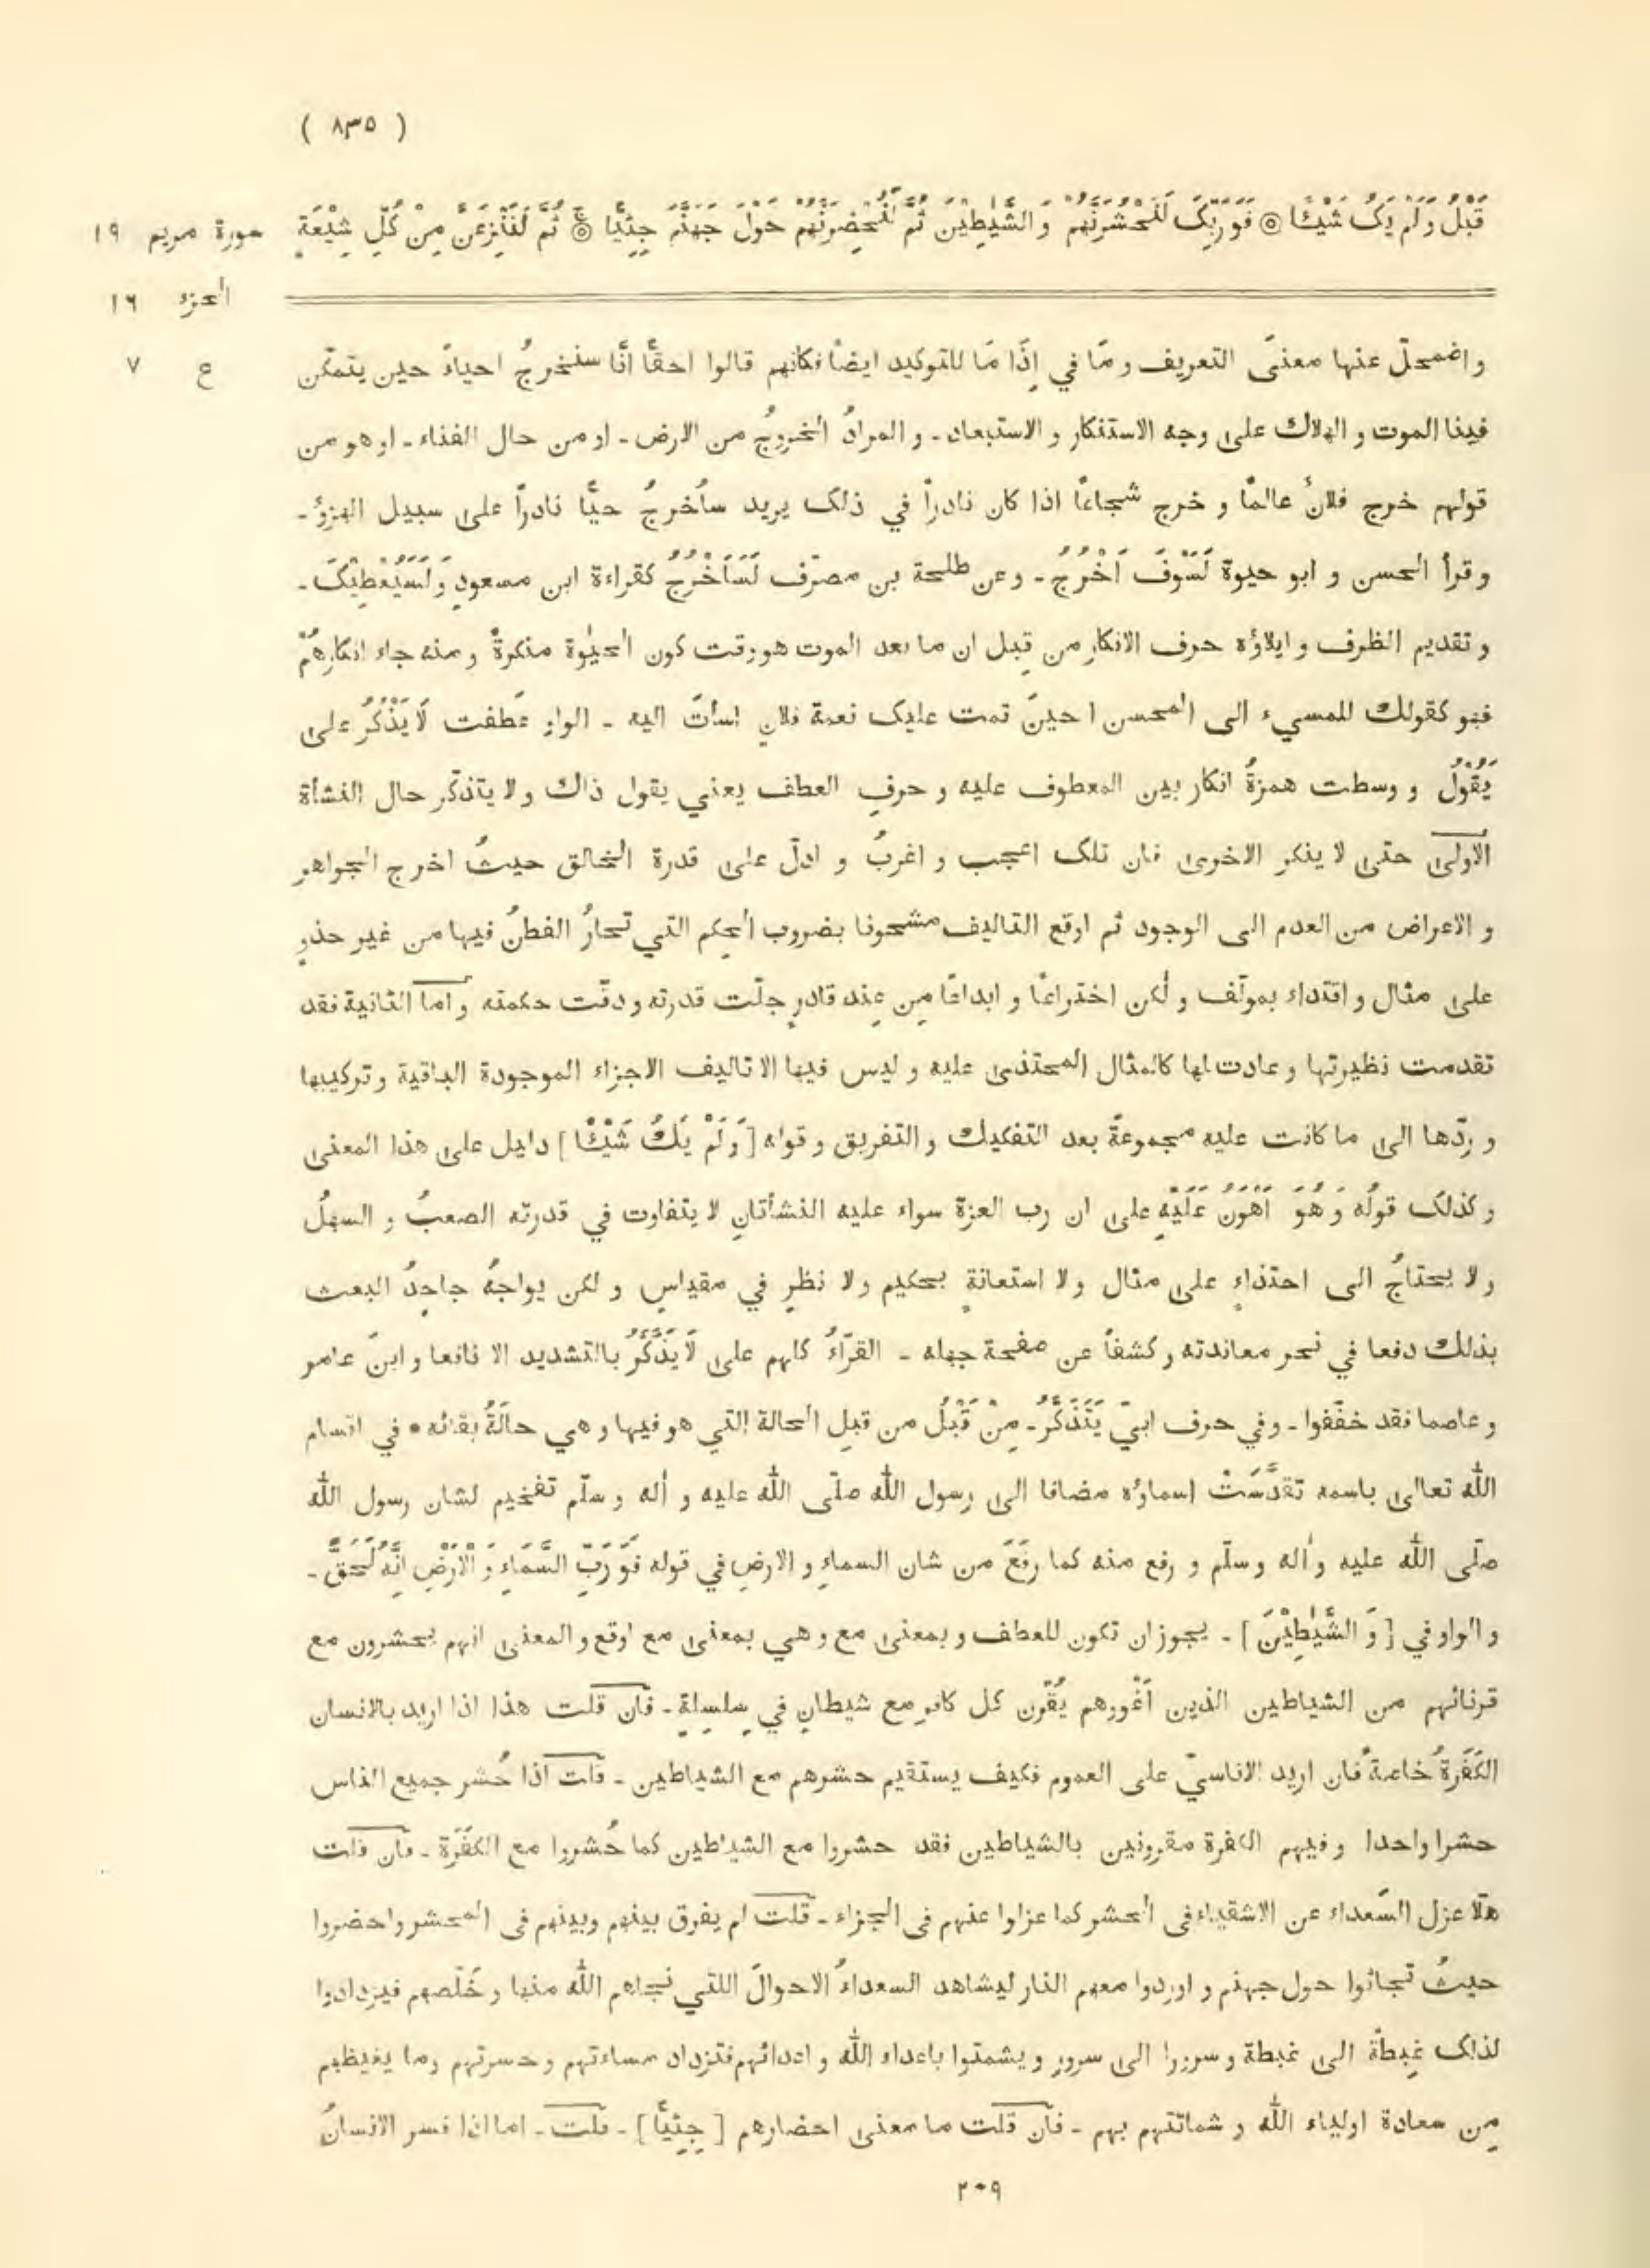 ( ٨٣٥ )
قَبْلُ وَلَمْ يَكُ شَيْئًا ۞ فَوَرَبِّكَ لَنَحْشُرَنَّهُمْ وَ الشَّيٰطِيْنَ ثُمَّ لَنُحْضِرَنَّهُمْ حَوْلَ جَهَنَّمَ جِثِيًّا ۞ ثُمَّ لَنَنْزِعَنَّ مِنْ كُلِّ شِيْعَةٍ
سورة مريم ١٩
الجزء ١٦
ع ٧
واضمحلّ عنها معنى التعريف و مَا في اِذَا مَا للتوكيد ايضاً فكانهم قالوا احقًّا اَنّا سنخرجُ احياءً حين يتمكّن
فينا الموت و الهلاك على وجه الاستنكار و الاستبعاد - و المرادُ الخروجُ من الارض - او من حال الفناء - او هو من
قولهم خرج فلانٌ عالمًا و خرج شجاعًا اذا كان نادراً في ذلك يريد ساُخرجُ حيًّا نادراً على سبيل الهزؤ -
و قرأ الحسن و ابو حيوة لَسَوْفَ اَخْرُجُ - وعن طلحة بن مصرّف لَسَاَخْرُجُ كقراءة ابن مسعودٍ وَلَسَيُعْطِيْكَ -
و تقديم الظرف و ايلاؤه حرف الانكار من قِبل ان ما بعد الموت هو وقت كون الحيٰوة منكرةً و منه جاء انكارهُمْ
فهو كقولك للمسيء الى المحسن ا حينَ تمت عليك نعمة فلانٍ اسأتَ اليه - الواو عَطفت لَا يَذْكُرُ على
يَقُوْلُ و وسطت همزةُ انكار بين المعطوف عليه و حرفِ العطف يعني يقول ذاك ولا يتذكّر حال النشأة
الاُولى حتى لا ينكر الاخرى فان تلك اعجب و اغربُ و ادلّ على قدرة الخالق حيثُ اخرج الجواهر
و الاعراض من العدم الى الوجود ثم اوقع التاليف مشحونا بضروب الحِكم التي تحارُ الفطنُ فيها من غير حذوٍ
على مثال و اقتداء بمولّف و لٰكن اختراعًا و ابداعًا مِن عِند قادرٍ جلّت قدرته و دقّت حكمته و اما الثانية فقد
تقدمت نظيرتها و عادت لها كالمثال المحتذى عليه و ليس فيها الا تاليف الاجزاء الموجودة الباقية و تركيبها
و ردّها الى ما كانت عليه مجموعةً بعد التفكيك و التفريق و قوله [ وَلَمْ يَكُ شَيْئًا ] دليل على هذا المعنى
و كذلك قولُه وَ هُوَ اَهْوَنُ عَلَيْهِ على ان رب العزة سواء عليه النشأتانِ لا يتفاوت في قدرته الصعبُ و السهلُ
ولا يحتاجُ الى احتذاءٍ على مثال ولا استعانةٍ بحكيم ولا نظرٍ في مقياسٍ و لكن يواجهُ جاحِدُ البعث
بذلك دفعا في نحر معاندته و كشفاً عن صفحة جهله - القرّاءُ كلهم على لَا يَذَّكَّرُ بالتشديد الا نافعا و ابنَ عامر
و عاصما فقد خفّفوا - وفي حرف ابيّ يَتَذَكَّرُ - مِنْ قَبْلُ من قبلِ الحالة التي هو فيها و هي حالَةُ بقائه • في اقسام
الله تعالى باسمه تقدَّسَتْ اسماؤه مضافا الى رسول الله صلّى الله عليه و اٰله وسلّم تفخيم لشان رسول الله
صلّى الله عليه واٰله وسلّم و رفع منه كما رفَعَ من شان السماءِ و الارضِ في قوله فَوَ رَبِّ السَّمَاءِ وَ الْاَرْضِ اِنَّهٗ لَحَقٌّ -
و الواو في [ وَ الشَّيٰطِيْنَ ] - يجوز ان تكون للعطف و بمعنى مع و هي بمعنى مع اوقع و المعنى انهم يحشرون مع
قرنائهم من الشياطين الذين اَغْووهم يُقّرن كل كافرٍ مع شيطانٍ في سِلسِلةٍ - فان قلت هذا اذا اريد بالانسان
الكَفَرَةُ خاصةً فان اريد الاناسيّ على العموم فكيف يستقيم حشرهم مع الشياطين - قلت اذا حُشر جميع الناس
حشرا واحدا و فيهم الكفرة مقرونين بالشياطين فقد حشروا مع الشياطين كما حُشروا مع الكفَرة - فان قلت
هلّا عزل السّعداء عن الاشقياء فى الحشر كما عزلوا عنهم فى الجزاء - قلت لم يفرق بينهم وبينهم فى المحشر واحضروا
حيثُ تجاثوا حول جهنم و اوردوا معهم النار ليشاهد السعداءُ الاحوالَ اللتي نجاهم الله منها و خَلّصهم فيزدادوا
لذلك غِبطةً الى غبطة و سرورا الى سرور و يشمتوا باعداء الله و اعدائهم فتزداد مساءتهم و حسرتهم وما يغيظهم
مِن معادة اولياء الله و شماتتهم بهم - فان قلت ما معنى احضارهم [ جِثِيًّا ] - قلت - اما اذا فسر الانسانُ
٢٠٩